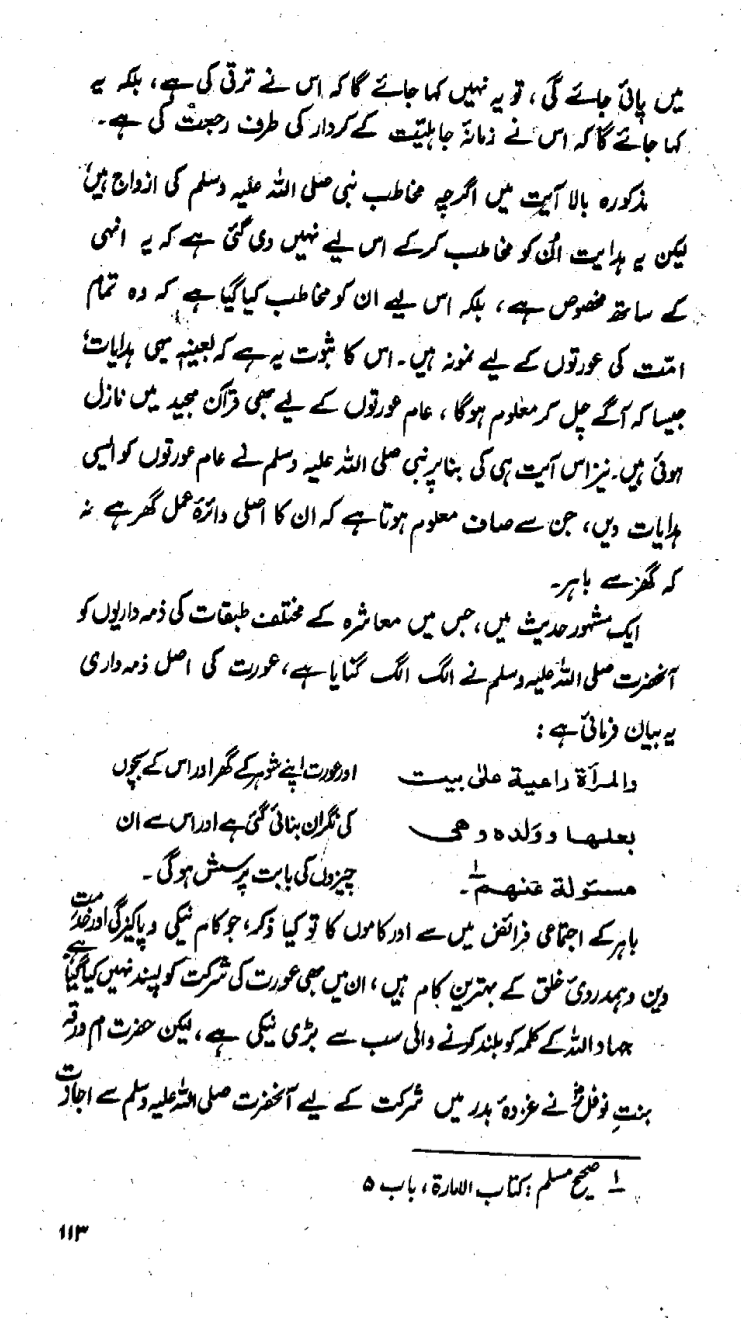 میں پائی جائے گی، تو یہ نہیں کہا جائے گا کہ اس نے ترقی کی ہے، بلکہ یہ
کہا جائے گا کہ اس نے زمانۂ جاہلیّت کے کردار کی طرف رجعت کی ہے۔
مذکورہ بالا آیت میں اگرچہ مخاطب نبی صلی اللہ علیہ وسلم کی ازواج ہیں
لیکن یہ ہدایت اُن کو مخاطب کرکے اس لیے نہیں دی گئی ہے کہ یہ انہی
کے ساتھ مخصوص ہے، بلکہ اس لیے ان کو مخاطب کیا گیا ہے کہ وہ تمام
امّت کی عورتوں کے لیے نمونہ ہیں۔ اس کا ثبوت یہ ہے کہ بعینہٖ یہی ہدایات
جیسا کہ آگے چل کر معلوم ہوگا، عام عورتوں کے لیے بھی قرآن مجید میں نازل
ہوئی ہیں۔ نیز اس آیت ہی کی بنا پر نبی صلی اللہ علیہ وسلم نے عام عورتوں کو ایسی
ہدایات دیں، جن سے صاف معلوم ہوتا ہے کہ ان کا اصلی دائرۂ عمل گھر ہے نہ
کہ گھر سے باہر۔
ایک مشہور حدیث میں، جس میں معاشرہ کے مختلف طبقات کی ذمہ داریوں کو
آنحضرت صلی اللہ علیہ وسلم نے الگ الگ گنایا ہے، عورت کی اصل ذمہ داری
یہ بیان فرمائی ہے:
والمرأة راعية على بيت
بعلها وولده وهي
مسئولة عنهم۔ ۱
اور عورت اپنے شوہر کے گھر اور اس کے بچوں
کی نگران بنائی گئی ہے اور اس سے ان
چیزوں کی بابت پرسش ہوگی۔
باہر کے اجتماعی فرائض میں سے اور کاموں کا تو کیا ذکر، جو کام نیکی و پاکیزگی اور خدمت
دین و ہمدردیٔ خلق کے بہترین کام ہیں، ان میں بھی عورت کی شرکت کو پسند نہیں کیا گیا ہے
جہاد اللہ کے کلمہ کو بلند کرنے والی سب سے بڑی نیکی ہے، لیکن حضرت ام ورقہ
بنتِ نوفلؓ نے غزوۂ بدر میں شرکت کے لیے آنحضرت صلی اللہ علیہ وسلم سے اجازت
۱ صحیح مسلم: کتاب الامارۃ، باب ۵
۱۱۳